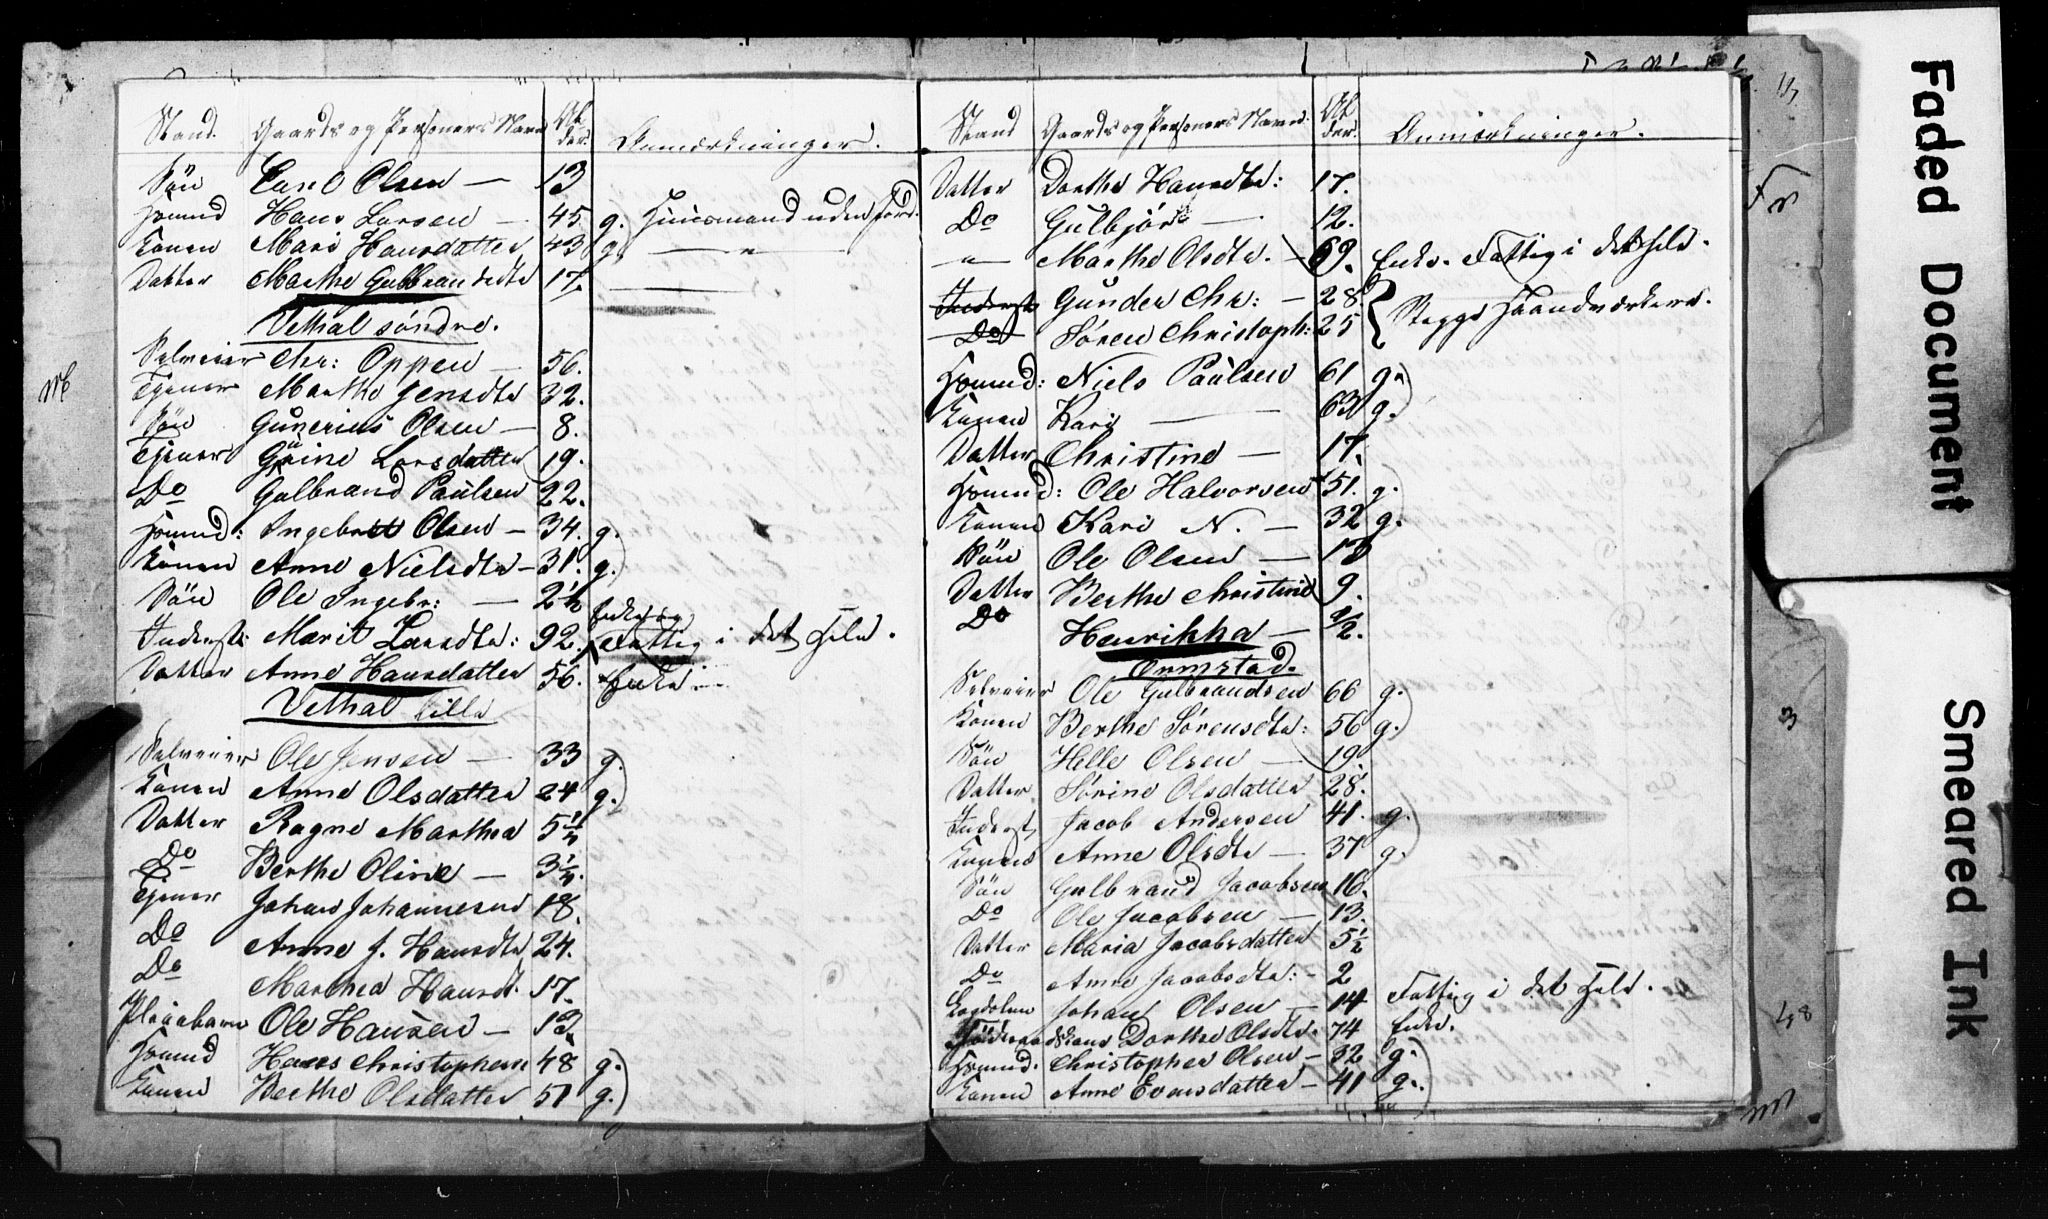 Stand. Gaards og Personers Navne Alder. Anmærkninger.
Sön Carl Olsen — 13
Hsmnd Hans Larsen — 45. g. Huusmand uden Jord.
Konen Mari Hansdatter 43 g. — " —
Datter Marthe Gulbrandsdtr 17. —
Vethal söndre.
Selveier Chr: Oppen — 56.
Tjener Marthe Jensdtr 32.
Sön Gunerius Olsen — 8.
Tjener Larsdatter 19.
Do Gulbrand Paulsen 22.
Hsmnd: Ingebret Olsen — 34. g.
Konen Anne Nielsdtr — 31. g.
Sön Ole Ingebr: — 2 1/2
Enke og
Inderst: Marit Larsdtr: 92. Fattig i det Hele.
Datter Anne Hansdatter 56. Enke —
Vethal lille
Selveier Ole Jensen — 33 g.
Konen Anne Olsdatter 24 g.
Datter Ragne Marthea 5 1/4
Do Berthe Oline — 3 1/4.
Tjener Johan Johannesen 18.
Do Anne J. Hansdtr 24.
Do Marthea Hansdt. 17.
Pleiebarn Ole Hansen — 13.
Hsmnd Hans Christophersen 48 g.
Konen Berthe Olsdatter 51 g.
Stand Gaards og Personers Navne. Alder. Anmærkninger.
Datter Dorthe Hansdtr: 17.
Do Gulbjör — 12.
— " — Marthe Olsdtr. — 69. Enke. Fattig i det Hele.
Inderst Gunder Chr: — 28. Begge Haandværkere.
Do Sören Christoph: 25
Hsmnd: Niels Paulsen 61 g.
Konen Kari — 63 g.
Datter Christine — 17.
Hsmnd: Ole Halvorsen 51. g.
Konen Kari N. — 32 g.
Sön Ole Olsen —
Datter Berthe Christine 9.
Do Henrikka —
Ormstad.
Selveier Ole Gulbrandsen 66 g.
Konen Berthe Sörensdtr: 56 g.
Sön Helle Olsen — 19.
Datter Sörine Olsdatter 28.
Inderst Jacob Andersen 41. g.
Konen Anne Olsdtr — 37 g.
Sön Gulbrand Jacobsen 16.
Do Ole Jacobsen — 13.
Datter Maria Jacobsdatter 5 1/2
Do Anne Jacobsdtr: — 2
Lægdslem Johan Olsen — 14 Fattig i det Hele.
Dorthe Olsdtr. 74 Enke.
Hsmnd. Christopher Olsen — 32 g.
Konen Anne Evensdatter — 41 g.
Faded Document
Smeared Ink